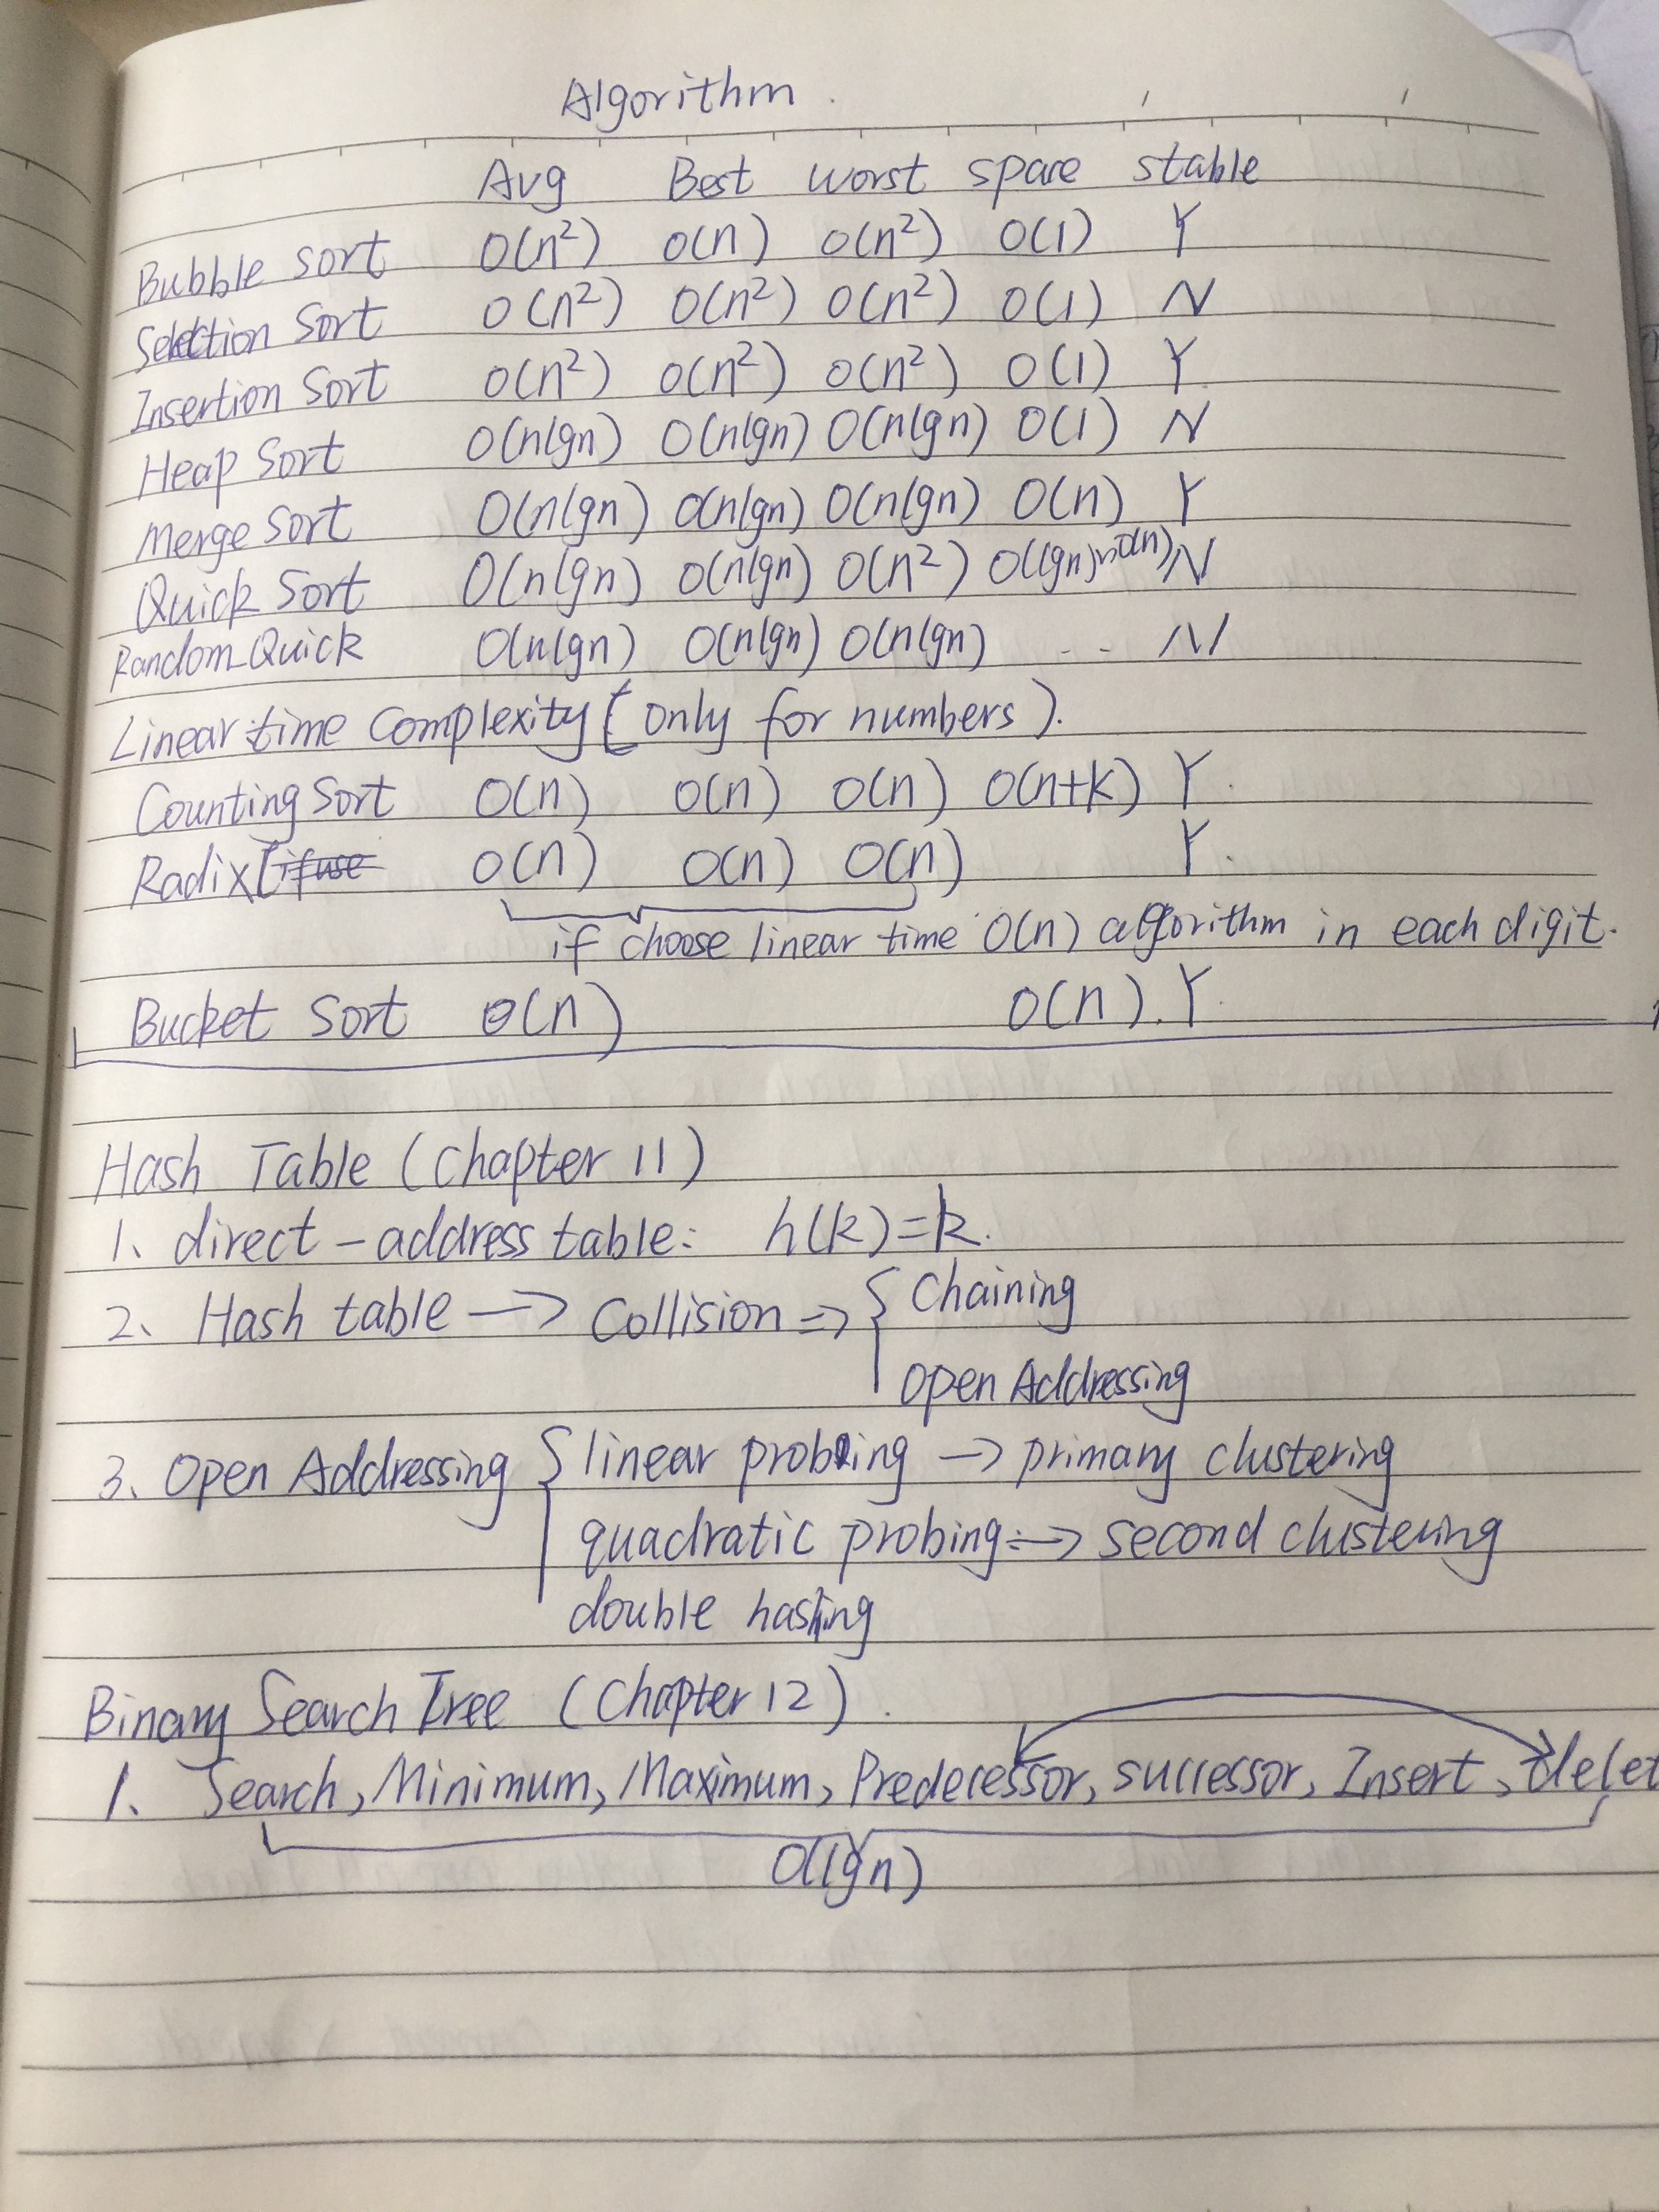 Algorithm
Avg Best worst space stable
Bubble sort O(n²) O(n) O(n²) O(1) Y
Selection Sort O(n²) O(n²) O(n²) O(1) N
Insertion Sort O(n²) O(n²) O(n²) O(1) Y
Heap Sort O(nlgn) O(nlgn) O(nlgn) O(1) N
Merge Sort O(nlgn) O(nlgn) O(nlgn) O(n) Y
Quick Sort O(nlgn) O(nlgn) O(n²) O(lgn)~O(n) N
Random_Quick O(nlgn) O(nlgn) O(nlgn) .. N
Linear time Complexity (only for numbers).
Counting Sort O(n) O(n) O(n) O(n+k) Y.
Radix O(n) O(n) O(n) Y.
if choose linear time O(n) algorithm in each digit.
Bucket Sort O(n) O(n). Y.
Hash Table (Chapter 11)
1、direct-address table: h(k)=k.
2、Hash table → Collision => { Chaining
Open Addressing
3、Open Addressing { linear probing → primary clustering
quadratic probing → second clustering
double hashing
Binary Search Tree (Chapter 12).
1、Search, Minimum, Maximum, Predecessor, successor, Insert, delet
O(lgn)